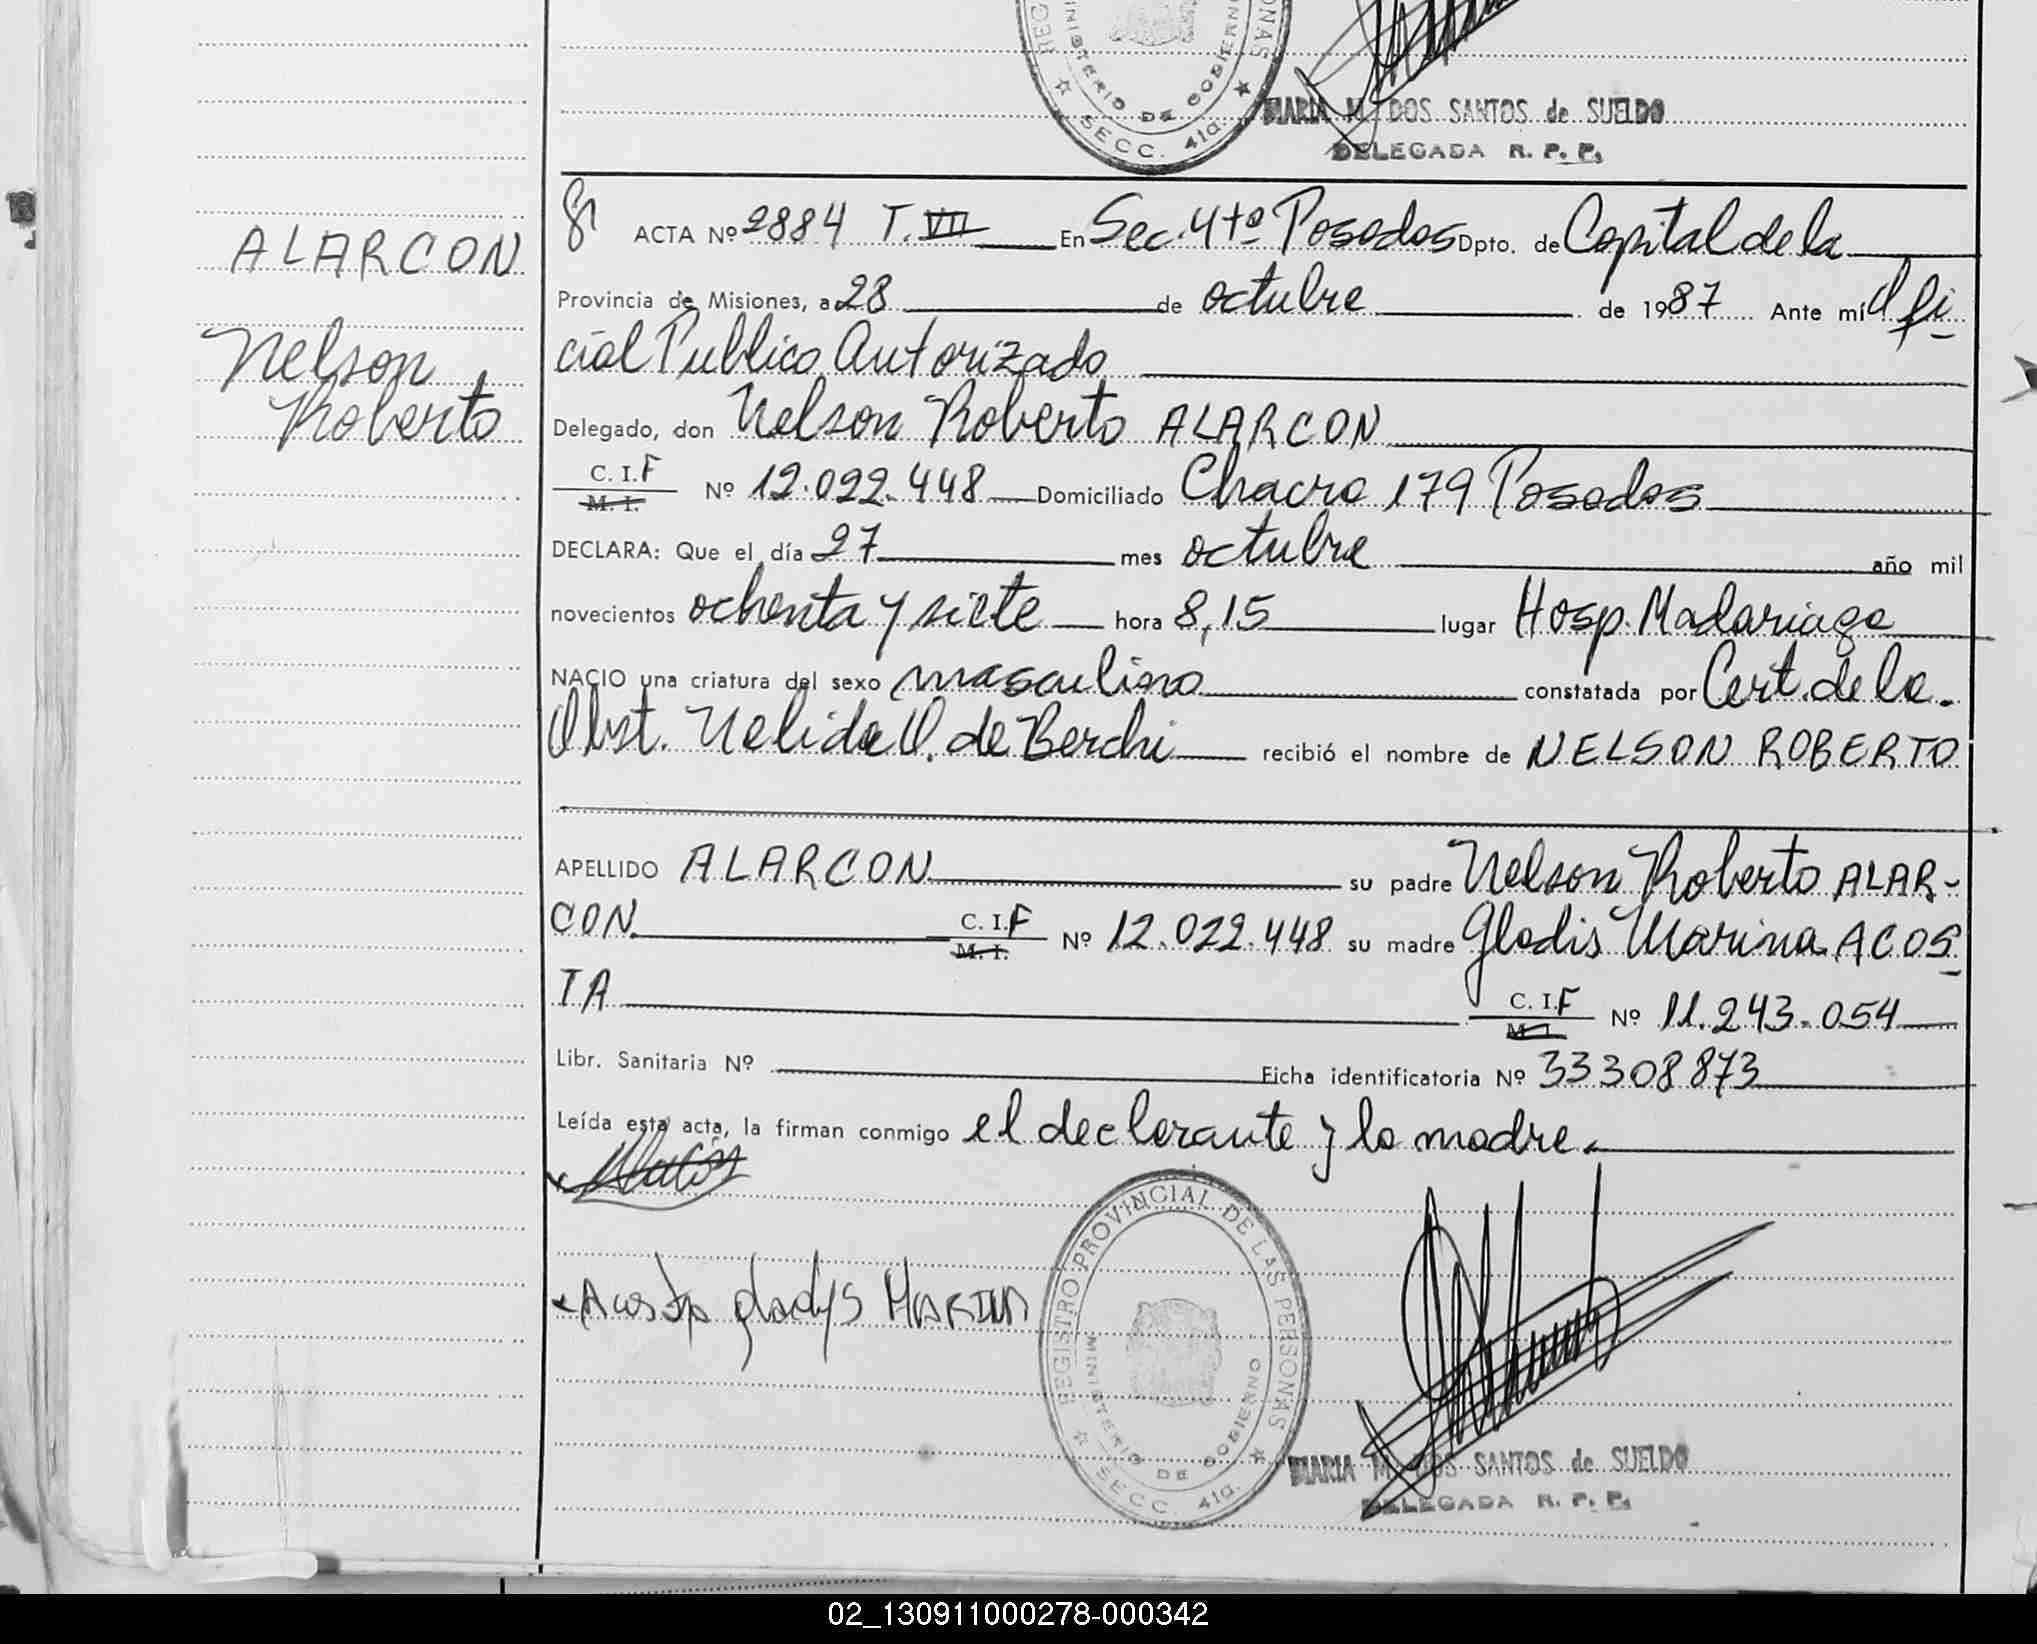 REG
ONAS
MINISTERIO DE GOBIERNO
☆ SECC. 41a. ★
MARIA M. DOS SANTOS de SUELDO
DELEGADA R. P. P.
ALARCON
Nelson
Roberto
ACTA Nº 2884 T. VII En Sec. 4ta Posadas Dpto. de Capital de la
Provincia de Misiones, a 28 de octubre de 1987 Ante mí Ofi-
cial Publico Autorizado
Delegado, don Nelson Roberto ALARCON
C. I.F
M. I. Nº 12.022.448 Domiciliado Chacra 179 Posadas
DECLARA: Que el día 27 mes octubre año mil
novecientos ochenta y siete hora 8,15 lugar Hosp. Madariaga
NACIO una criatura del sexo masculino constatada por Cert. de la.
Obst. Nelida O. de Berchi recibió el nombre de NELSON ROBERTO
APELLIDO ALARCON su padre Nelson Roberto ALAR-
CON C. I.F M. I. Nº 12.022.448 su madre Gladis Marina ACOS-
TA C. I.F M. I. Nº 11.243.054
Libr. Sanitaria Nº Ficha identificatoria Nº 33308873
Leída esta acta, la firman conmigo el declarante y la madre.
Acosta gladys MARINA
REGISTRO PROVINCIAL DE LAS PERSONAS
MINISTERIO DE GOBIERNO
☆ SECC. 41a. ★
MARIA M. DOS SANTOS de SUELDO
DELEGADA R. P. P.
02_130911000278-000342